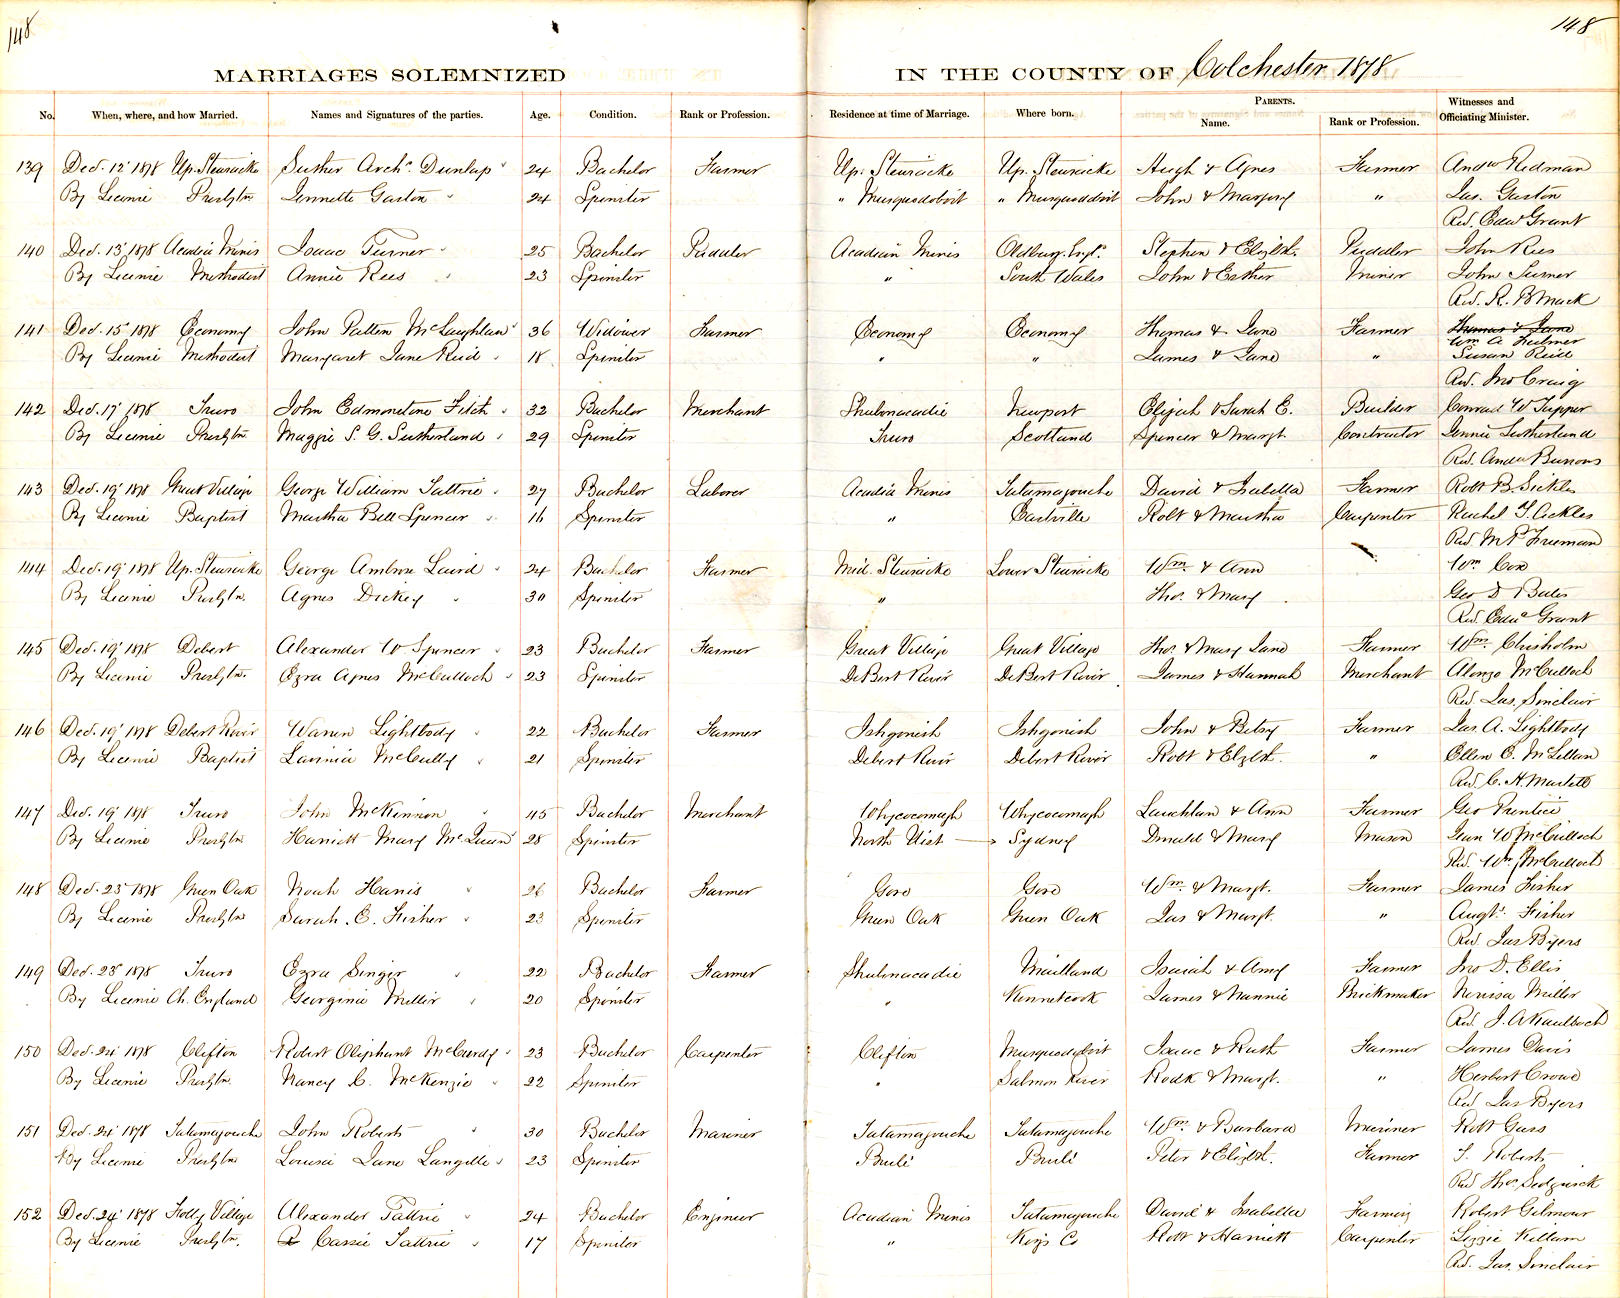 148
148
MARRIAGES SOLEMNIZED IN THE COUNTY OF Colchester 1878
No. When, where, and how Married. Names and Signatures of the parties. Age. Condition. Rank or Profession. Residence at time of Marriage. Where born. PARENTS. Name. Rank or Profession. Witnesses and Officiating Minister.
139 Dec. 12 1878 Up. Stewiacke Luther Archd. Dunlap 24 Bachelor Farmer Up. Stewiacke Up. Stewiacke Hugh & Agnes Farmer Andw Redman
By Licence Presbytn Jennette Gaston 24 Spinster " Musquodoboit " Musquodoboit John & Margery " Jas. Gaston
Rev. Edw Grant
140 Dec. 13 1878 Acadia Mines Isaac Turner 25 Bachelor Puddler Acadian Mines Oldbury Engd. Stephen & Elizbt. Puddler John Rees
By Licence Methodist Annie Rees 23 Spinster " South Wales John & Esther Miner John Turner
Rev. R. B Mack
141 Dec. 15 1878 Economy John Patten McLaughlan 36 Widower Farmer Economy Economy Thomas & Jane Farmer Thomas & Jane
Wm A Fulmer
By Licence Methodist Margaret Jane Reid 18 Spinster " " James & Jane " Susan Reid
Rev. Jno Craig
142 Dec. 17 1878 Truro John Edmonstone Fitch 32 Bachelor Merchant Shubenacadie Newport Elijah & Sarah E. Builder Conrad W Tupper
By Licence Presbytn Maggie S. G. Sutherland 29 Spinster Truro Scotland Spencer & Margt. Contractor Jennie Sutherland
Rev. Andw Burrows
143 Dec. 19 1878 Great Village George William Tattrie 27 Bachelor Laborer Acadia Mines Tatamagouche David & Isabella Farmer Robt B. Sickles
By Licence Baptist Martha Bell Spencer 16 Spinster " Eastville Robt & Martha Carpenter Rachel
Rev. M P Freeman
144 Dec. 19 1878 Up. Stewiacke George Ambrose Laird 24 Bachelor Farmer Mid. Stewiacke Lower Stewiacke Wm. & Ann Wm Cox
By Licence Presbytn. Agnes Dickey 30 Spinster " Thos. & Mary Geo D Bates
Rev. Edwd Grant
145 Dec. 19 1878 Debert Alexander W Spencer 23 Bachelor Farmer Great Village Great Village Thos. & Mary Jane Farmer Wm. Chisholm
By Licence Presbytn. Ezra Agnes McCulloch 23 Spinster DeBert River DeBert River James & Hannah Merchant Alonzo McCulloch
Rev. Jas. Sinclair
146 Dec. 19 1878 Debert River Warren Lightbody 22 Bachelor Farmer Ishgonish Ishgonish John & Betsy Farmer Jas. A. Lightbody
By Licence Baptist Lavinia McCully 21 Spinster Debert River Debert River Robt & Elzbt. " Ellen C. McLellan
Rev. C. H. Martell
147 Dec. 19 1878 Truro John McKinnon 45 Bachelor Merchant Whycocomagh Whycocomagh Lauchlan & Ann Farmer Geo Prentice
By Licence Presbytn Harriett Mary McQueen 28 Spinster North Uist Sydney Donald & Mary Mason Jean W McCulloch
Rev. Wm McCulloch
148 Dec. 23 1878 Green Oak Noah Harris 26 Bachelor Farmer Gore Gore Wm. & Margt. Farmer James Fisher
By Licence Presbytn Sarah. E. Fisher 23 Spinster Green Oak Green Oak Jas & Margt. " Augts. Fisher
Rev. Jas Byers
149 Dec. 23 1878 Truro Ezra Singer 22 Bachelor Farmer Shubenacadie Maitland Isaiah & Amy Farmer Jno D. Ellis
By Licence Ch. England Georginia Miller 20 Spinster " Kennetcook James & Nannie Brickmaker Nerissa Miller
Rev. J. A Kaulbach
150 Dec. 24 1878 Clifton Robert Oliphant McCurdy 23 Bachelor Carpenter Clifton Musquodoboit Isaac & Ruth Farmer James Davis
By Licence Presbytn. Nancy C. McKenzie 22 Spinster " Salmon River Rodk & Margt. " Herbert Crowe
Rev Jas Byers
151 Dec. 24 1878 Tatamagouche John Roberts 30 Bachelor Mariner Tatamagouche Tatamagouche Wm. & Barbara Mariner Robt
By Licence Presbytn Louisa Jane Langille 23 Spinster Brulé Brulé Peter & Elizbt. Farmer S. Roberts
Rev Thos. Sedgwick
152 Dec. 24 1878 Folly Village Alexander Tattrie 24 Bachelor Engineer Acadian Mines Tatamagouche David & Isabella Farming Robert Gilmour
By Licence Presbytn. Cassie Tattrie 17 Spinster " Kings Co Robt & Harriett Carpenter Lizzie Killam
Rev. Jas. Sinclair